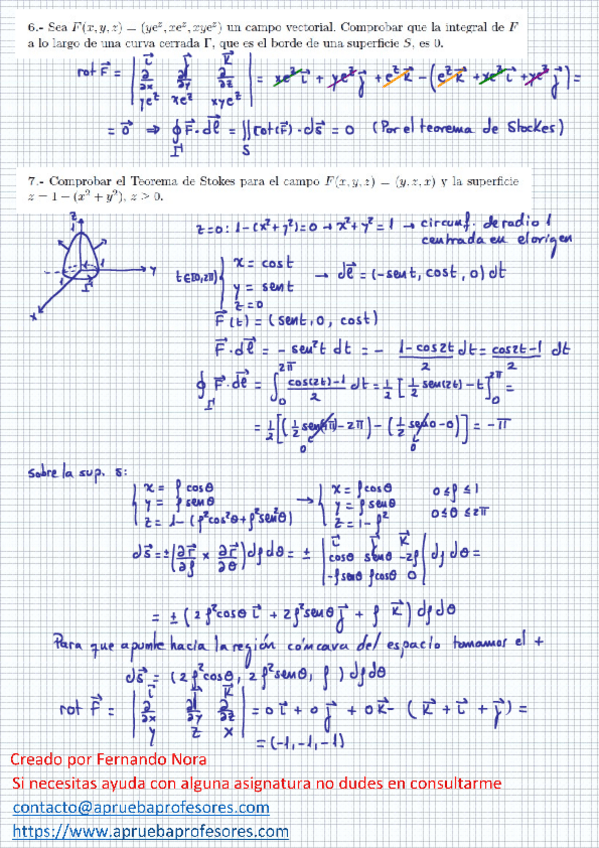 6.- Sea F(x, y, z) = (ye^z, xe^z, xye^z) un campo vectorial. Comprobar que la integral de F
a lo largo de una curva cerrada Γ, que es el borde de una superficie S, es 0.
rot F⃗ = | i⃗ j⃗ k⃗ ; ∂/∂x ∂/∂y ∂/∂z ; ye^z xe^z xye^z | = xe^z i⃗ + ye^z j⃗ + e^z k⃗ - (e^z k⃗ + xe^z i⃗ + ye^z j⃗) =
= 0⃗ ⇒ ∮_Γ F⃗·dl⃗ = ∬_S rot(F⃗)·ds⃗ = 0 (Por el teorema de Stockes)
7.- Comprobar el Teorema de Stokes para el campo F(x, y, z) = (y, z, x) y la superficie
z = 1 - (x² + y²), z > 0.
z=0: 1-(x²+y²)=0 → x²+y²=1 → circunf. de radio 1
centrada en el origen
z
1
1
1
y
x
Γ
t∈[0,2π] { x = cost
y = sent
z=0
→ dl⃗ = (-sent, cost, 0) dt
F⃗(t) = (sent, 0, cost)
F⃗·dl⃗ = - sen²t dt = - (1-cos2t)/2 dt = (cos2t-1)/2 dt
∮_Γ F⃗·dl⃗ = ∫_0^2π (cos(2t)-1)/2 dt = 1/2 [1/2 sen(2t) - t]_0^2π =
= 1/2 [(1/2 sen(4π) - 2π) - (1/2 sen0 - 0)] = -π
0
0
sobre la sup. s:
{ x = ρ cosθ
y = ρ senθ
z = 1 - (ρ²cos²θ + ρ²sen²θ)
→ { x = ρcosθ
y = ρ senθ
z = 1-ρ²
0≤ρ≤1
0≤θ≤2π
ds⃗ = ±(∂r⃗/∂ρ × ∂r⃗/∂θ) dρ dθ = ± | i⃗ j⃗ k⃗ ; cosθ senθ -2ρ ; -ρsenθ ρcosθ 0 | dρ dθ =
= ± (2ρ²cosθ i⃗ + 2ρ²senθ j⃗ + ρ k⃗) dρ dθ
Para que apunte hacia la región cóncava del espacio tomamos el +
ds⃗ = (2ρ²cosθ, 2ρ²senθ, ρ) dρdθ
rot F⃗ = | i⃗ j⃗ k⃗ ; ∂/∂x ∂/∂y ∂/∂z ; y z x | = 0 i⃗ + 0 j⃗ + 0k⃗ - (k⃗ + i⃗ + j⃗) =
= (-1,-1,-1)
Creado por Fernando Nora
Si necesitas ayuda con alguna asignatura no dudes en consultarme
contacto@apruebaprofesores.com
https://www.apruebaprofesores.com